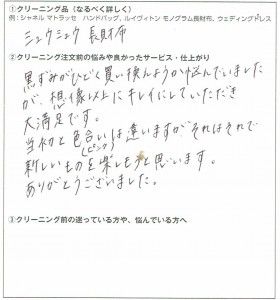 ①クリーニング品（なるべく詳しく）
例：シャネル マトラッセ ハンドバッグ、ルイヴィトン モノグラム長財布、ウェディングドレス
ミュウミュウ 長財布
②クリーニング注文前の悩みや良かったサービス・仕上がり
黒ずみがひどく買い換えようか悩んでいました
が、想像以上にキレイにしていただき
大満足です。
当初と色合いは違いますがそれはそれで
(ピンク)
新しいものを楽しもうと思います。
ありがとうございました。
③クリーニング前の迷っている方や、悩んでいる方へ